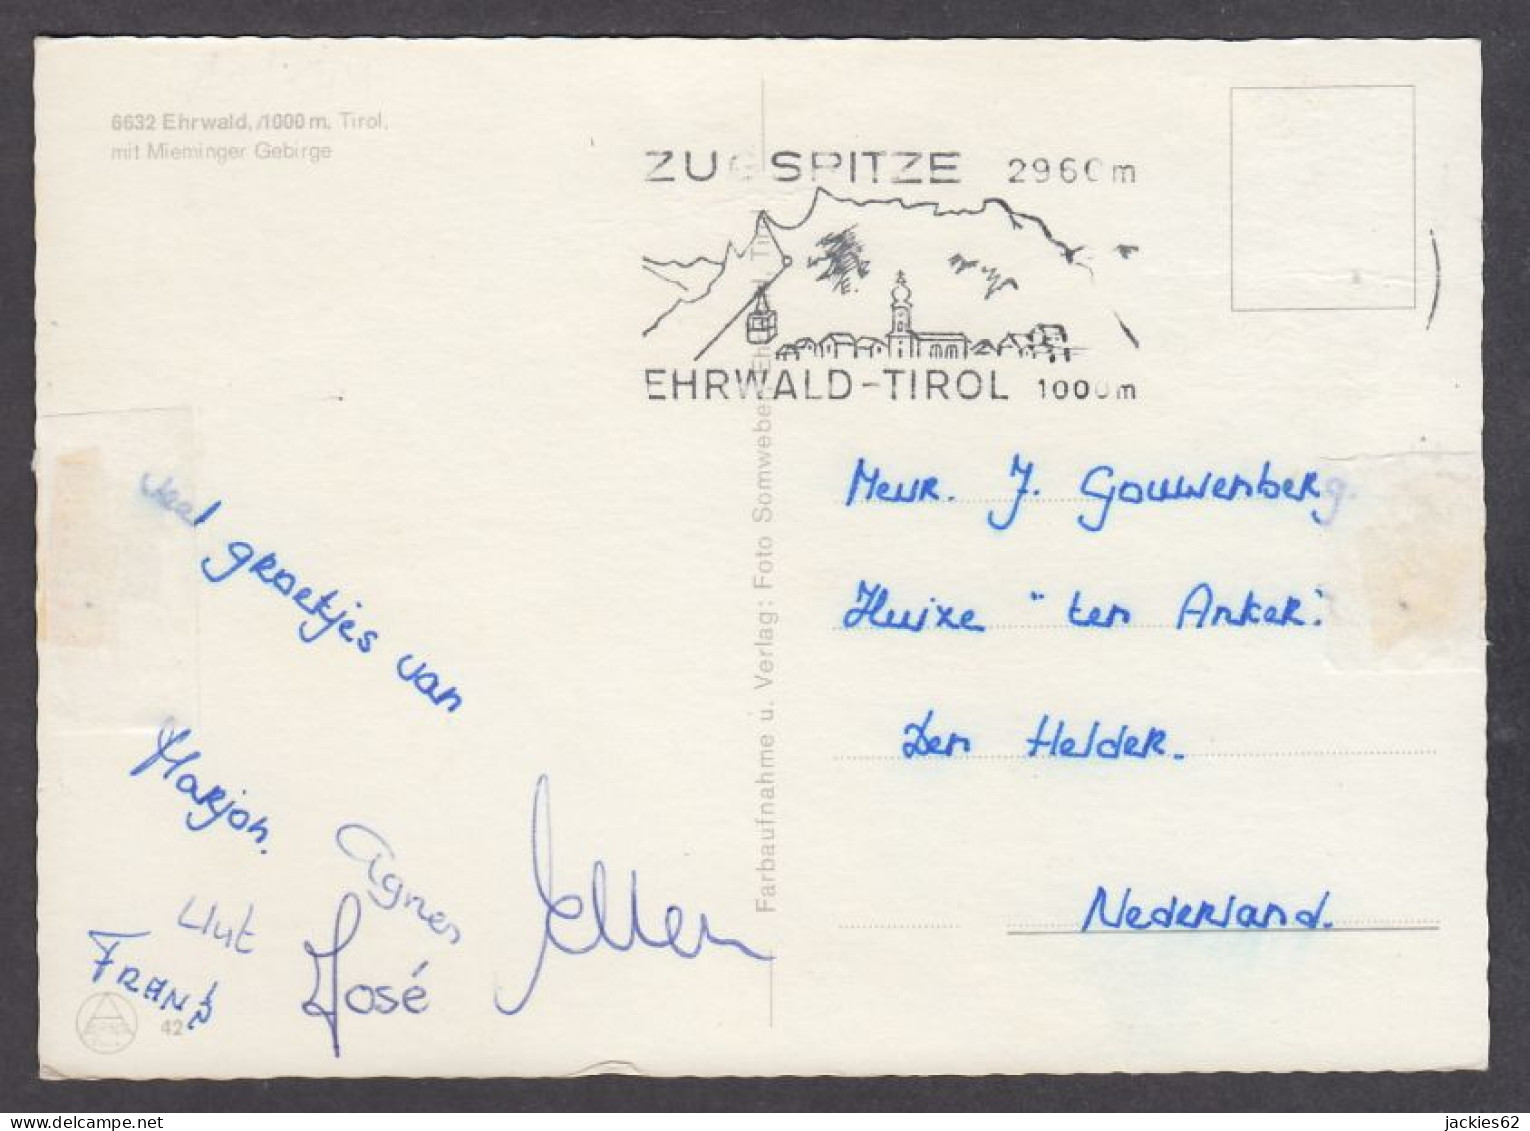 6632 Ehrwald, 1000 m, Tirol,
mit Mieminger Gebirge
ZUGSPITZE 2960 m
EHRWALD-TIROL 1000 m
Farbaufnahme u. Verlag: Foto Somweber, Ehrwald, Tirol
veel groetjes van
Marjon.
Agnes
Ellen
José
FRANS
42
Meur. J. Gouwenberg.
Huize "ten Anker."
Den Helder.
Nederland.
jackies62